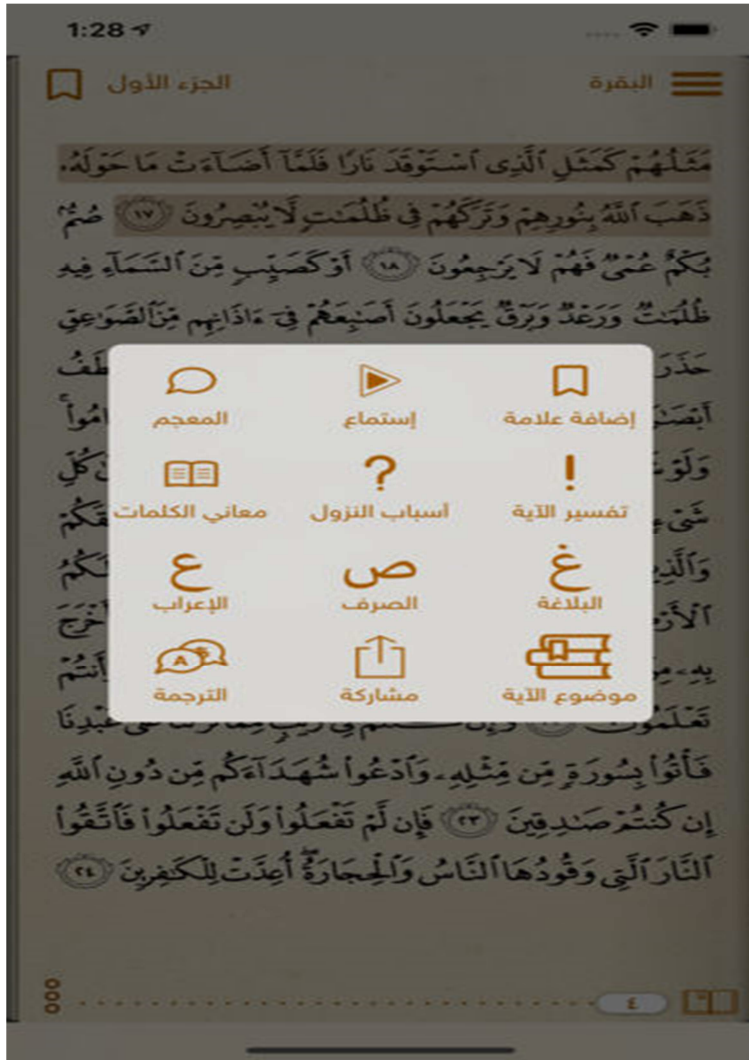 1:28
البقرة الجزء الأول
مَثَلُهُمْ كَمَثَلِ ٱلَّذِى ٱسْتَوْقَدَ نَارًا فَلَمَّآ أَضَآءَتْ مَا حَوْلَهُۥ
ذَهَبَ ٱللَّهُ بِنُورِهِمْ وَتَرَكَهُمْ فِى ظُلُمَـٰتٍ لَّا يُبْصِرُونَ ١٧ صُمٌّۢ
بُكْمٌ عُمْىٌ فَهُمْ لَا يَرْجِعُونَ ١٨ أَوْ كَصَيِّبٍ مِّنَ ٱلسَّمَآءِ فِيهِ
ظُلُمَـٰتٌ وَرَعْدٌ وَبَرْقٌ يَجْعَلُونَ أَصَـٰبِعَهُمْ فِىٓ ءَاذَانِهِم مِّنَ ٱلصَّوَٰعِقِ
حَذَرَ
وَلَوْ
كُلِّ
شَىْءٍ
بِهِۦ
إضافة علامة إستماع المعجم
تفسير الآية أسباب النزول معاني الكلمات
البلاغة الصرف الإعراب
موضوع الآية مشاركة الترجمة
فَأْتُوا۟ بِسُورَةٍ مِّن مِّثْلِهِۦ وَٱدْعُوا۟ شُهَدَآءَكُم مِّن دُونِ ٱللَّهِ
إِن كُنتُمْ صَـٰدِقِينَ ٢٣ فَإِن لَّمْ تَفْعَلُوا۟ وَلَن تَفْعَلُوا۟ فَٱتَّقُوا۟
ٱلنَّارَ ٱلَّتِى وَقُودُهَا ٱلنَّاسُ وَٱلْحِجَارَةُ ۖ أُعِدَّتْ لِلْكَـٰفِرِينَ ٢٤
٤